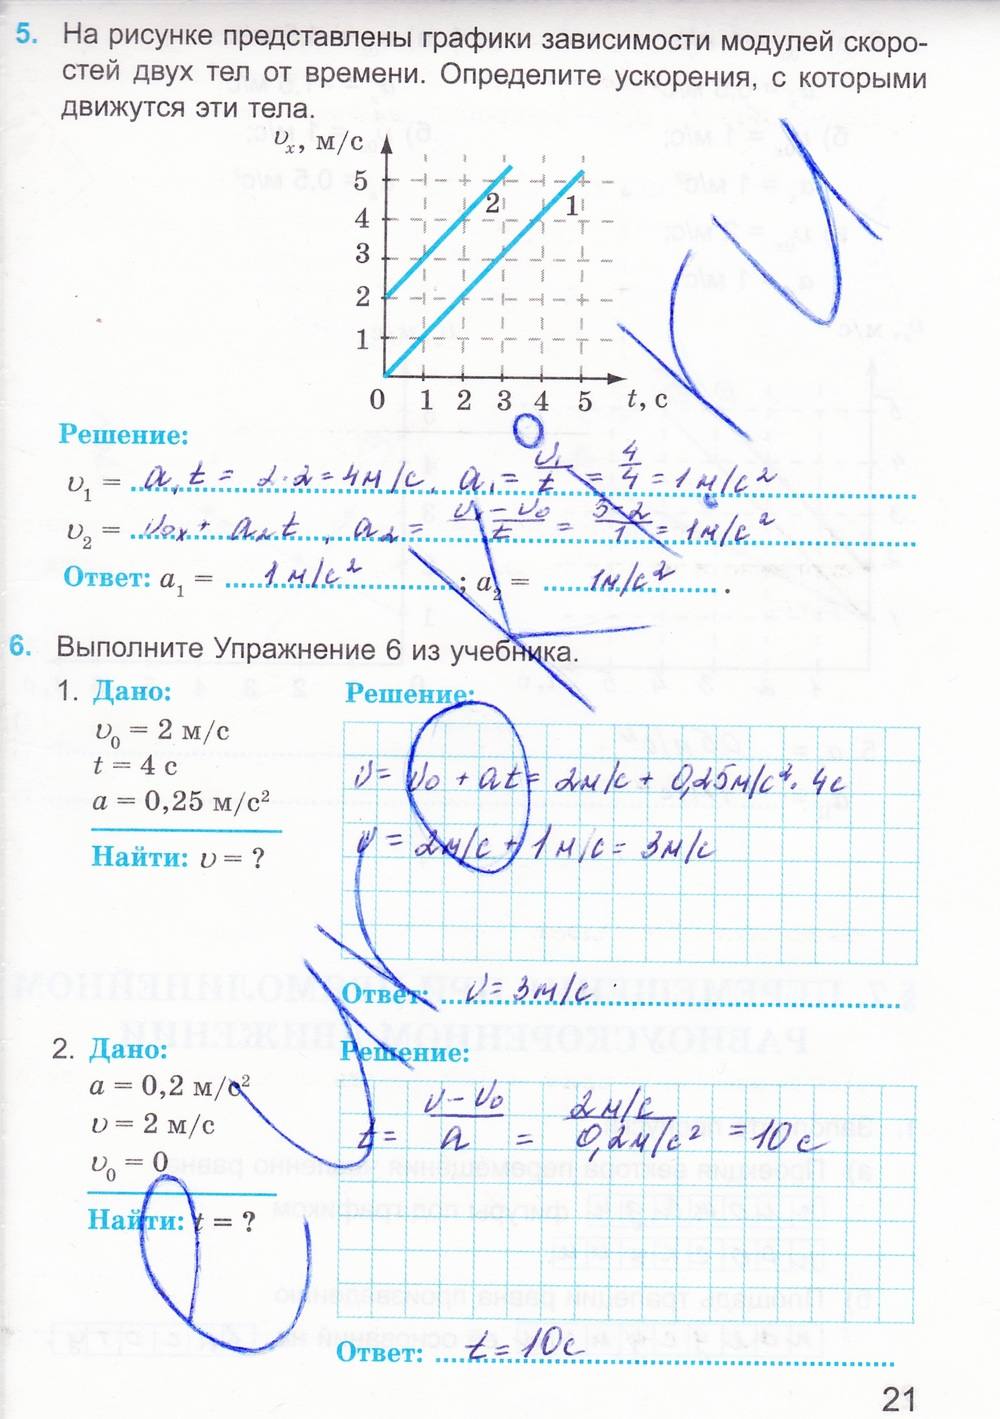 5. На рисунке представлены графики зависимости модулей скоро-
стей двух тел от времени. Определите ускорения, с которыми
движутся эти тела.
υx, м/с
5
4
3
2
1
2
1
0 1 2 3 4 5 t, с
Решение:
υ1 = a1t = 2·2 = 4м/с, a1 = υ1/t = 4/4 = 1м/с²
υ2 = υ0x + a2t, a2 = υx - υ0/t = 3-2/1 = 1м/с²
Ответ: a1 = 1м/с²; a2 = 1м/с².
6. Выполните Упражнение 6 из учебника.
1. Дано:
υ0 = 2 м/с
t = 4 с
a = 0,25 м/с²
Найти: υ = ?
Решение:
υ = υ0 + at = 2м/с + 0,25м/с² · 4с
υ = 2м/с + 1м/с = 3м/с
Ответ: υ = 3м/с.
2. Дано:
a = 0,2 м/с²
υ = 2 м/с
υ0 = 0
Найти: t = ?
Решение:
t = υ - υ0/a = 2м/с/0,2м/с² = 10с
Ответ: t = 10с
21